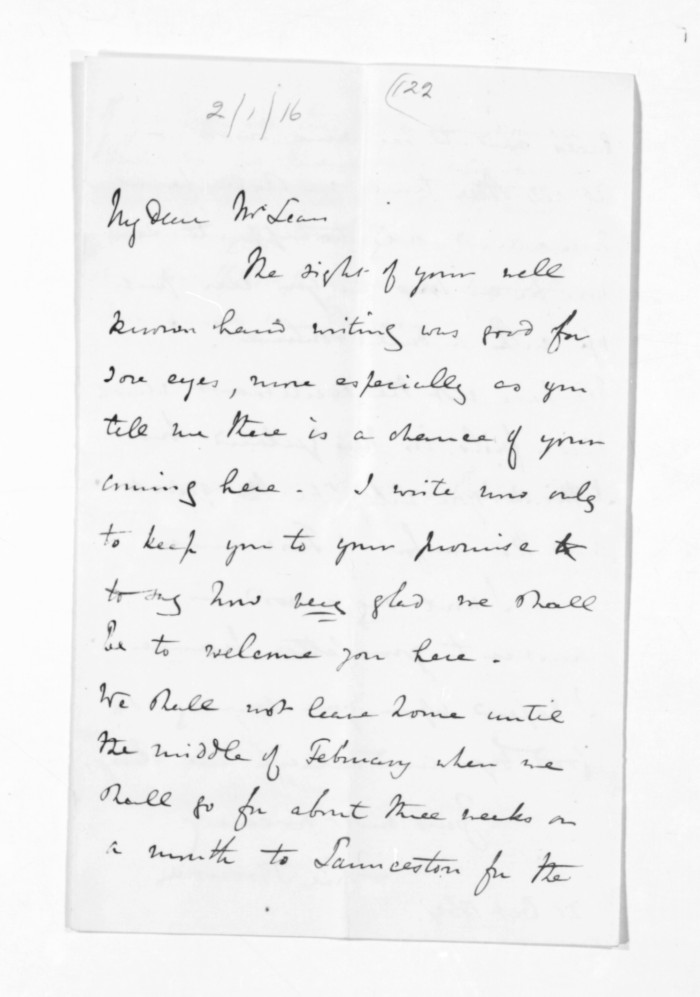 122
2/1/16
My Dear McLean
The sight of your well
known hand writing was good for
sore eyes, more especially as you
tell me there is a chance of your
coming here. I write now only
to keep you to your promise to
to say how very glad we shall
be to welcome you here.
We shall not leave home until
the middle of February when we
shall go for about three weeks or
a month to Launceston for the